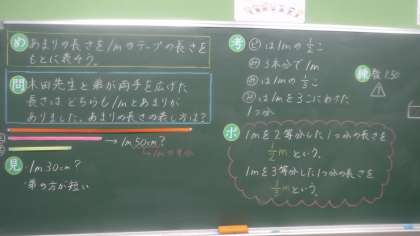 め
あまりの長さを1mのテープの長さを
もとに表そう。
問
木田先生と弟が両手を広げた
長さはどちらも1mとあまりが
ありました。あまりの長さの表し方は?
→ 1m50cm?
→1mの半分
見
1m30cm?
弟の方が短い
考
ピは1mの1/2こ
3本分で1m
は1mの1/3こ
は1mを3こにわけた
1つ分
ポ
1mを2等分した1つ分の長さを
1/2mという。
1mを3等分した1つ分の長さを
1/3mという。
練